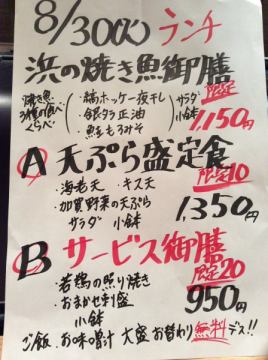 8/30(火) ランチ
浜の焼き魚御膳
限定
焼き魚 3種の食べくらべ
・縞ホッケ一夜干し
・銀ダラ正油
・鮭もろみそ
サラダ
小鉢
1,150円
A 天ぷら盛定食
限定10
・海老天 ・キス天
・加賀野菜の天ぷら
サラダ 小鉢
1,350円
B サービス御膳
限定20
・若鶏の照り焼き
・おまかせ刺盛
小鉢
950円
ご飯、お味噌汁 大盛 お替わり 無料デス!!